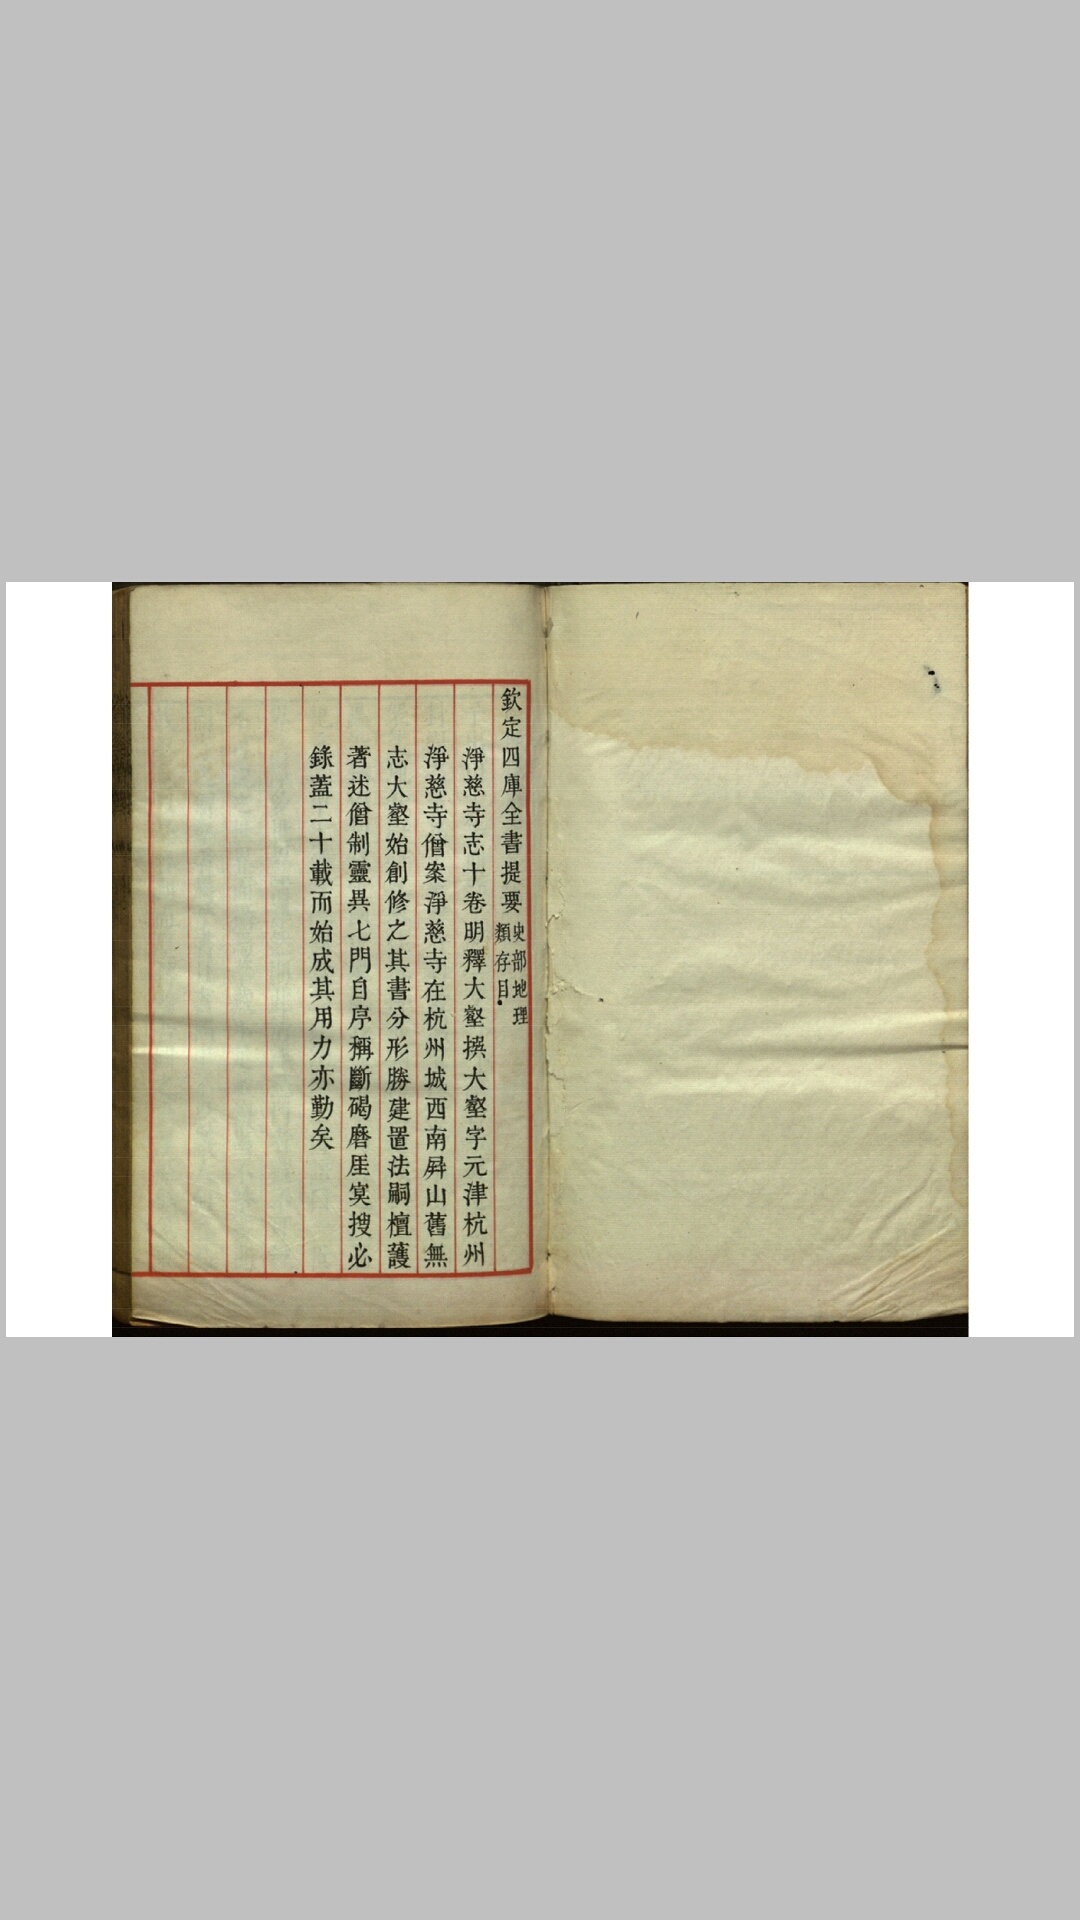 欽定四庫全書提要史部地理類存目
淨慈寺志十卷明釋大壑撰大壑字元津杭州
淨慈寺僧案淨慈寺在杭州城西南屛山舊無
志大壑始創修之其書分形勝建置法嗣檀護
著述僧制靈異七門自序稱斷碣磨厓寞搜必
錄蓋二十載而始成其用力亦勤矣